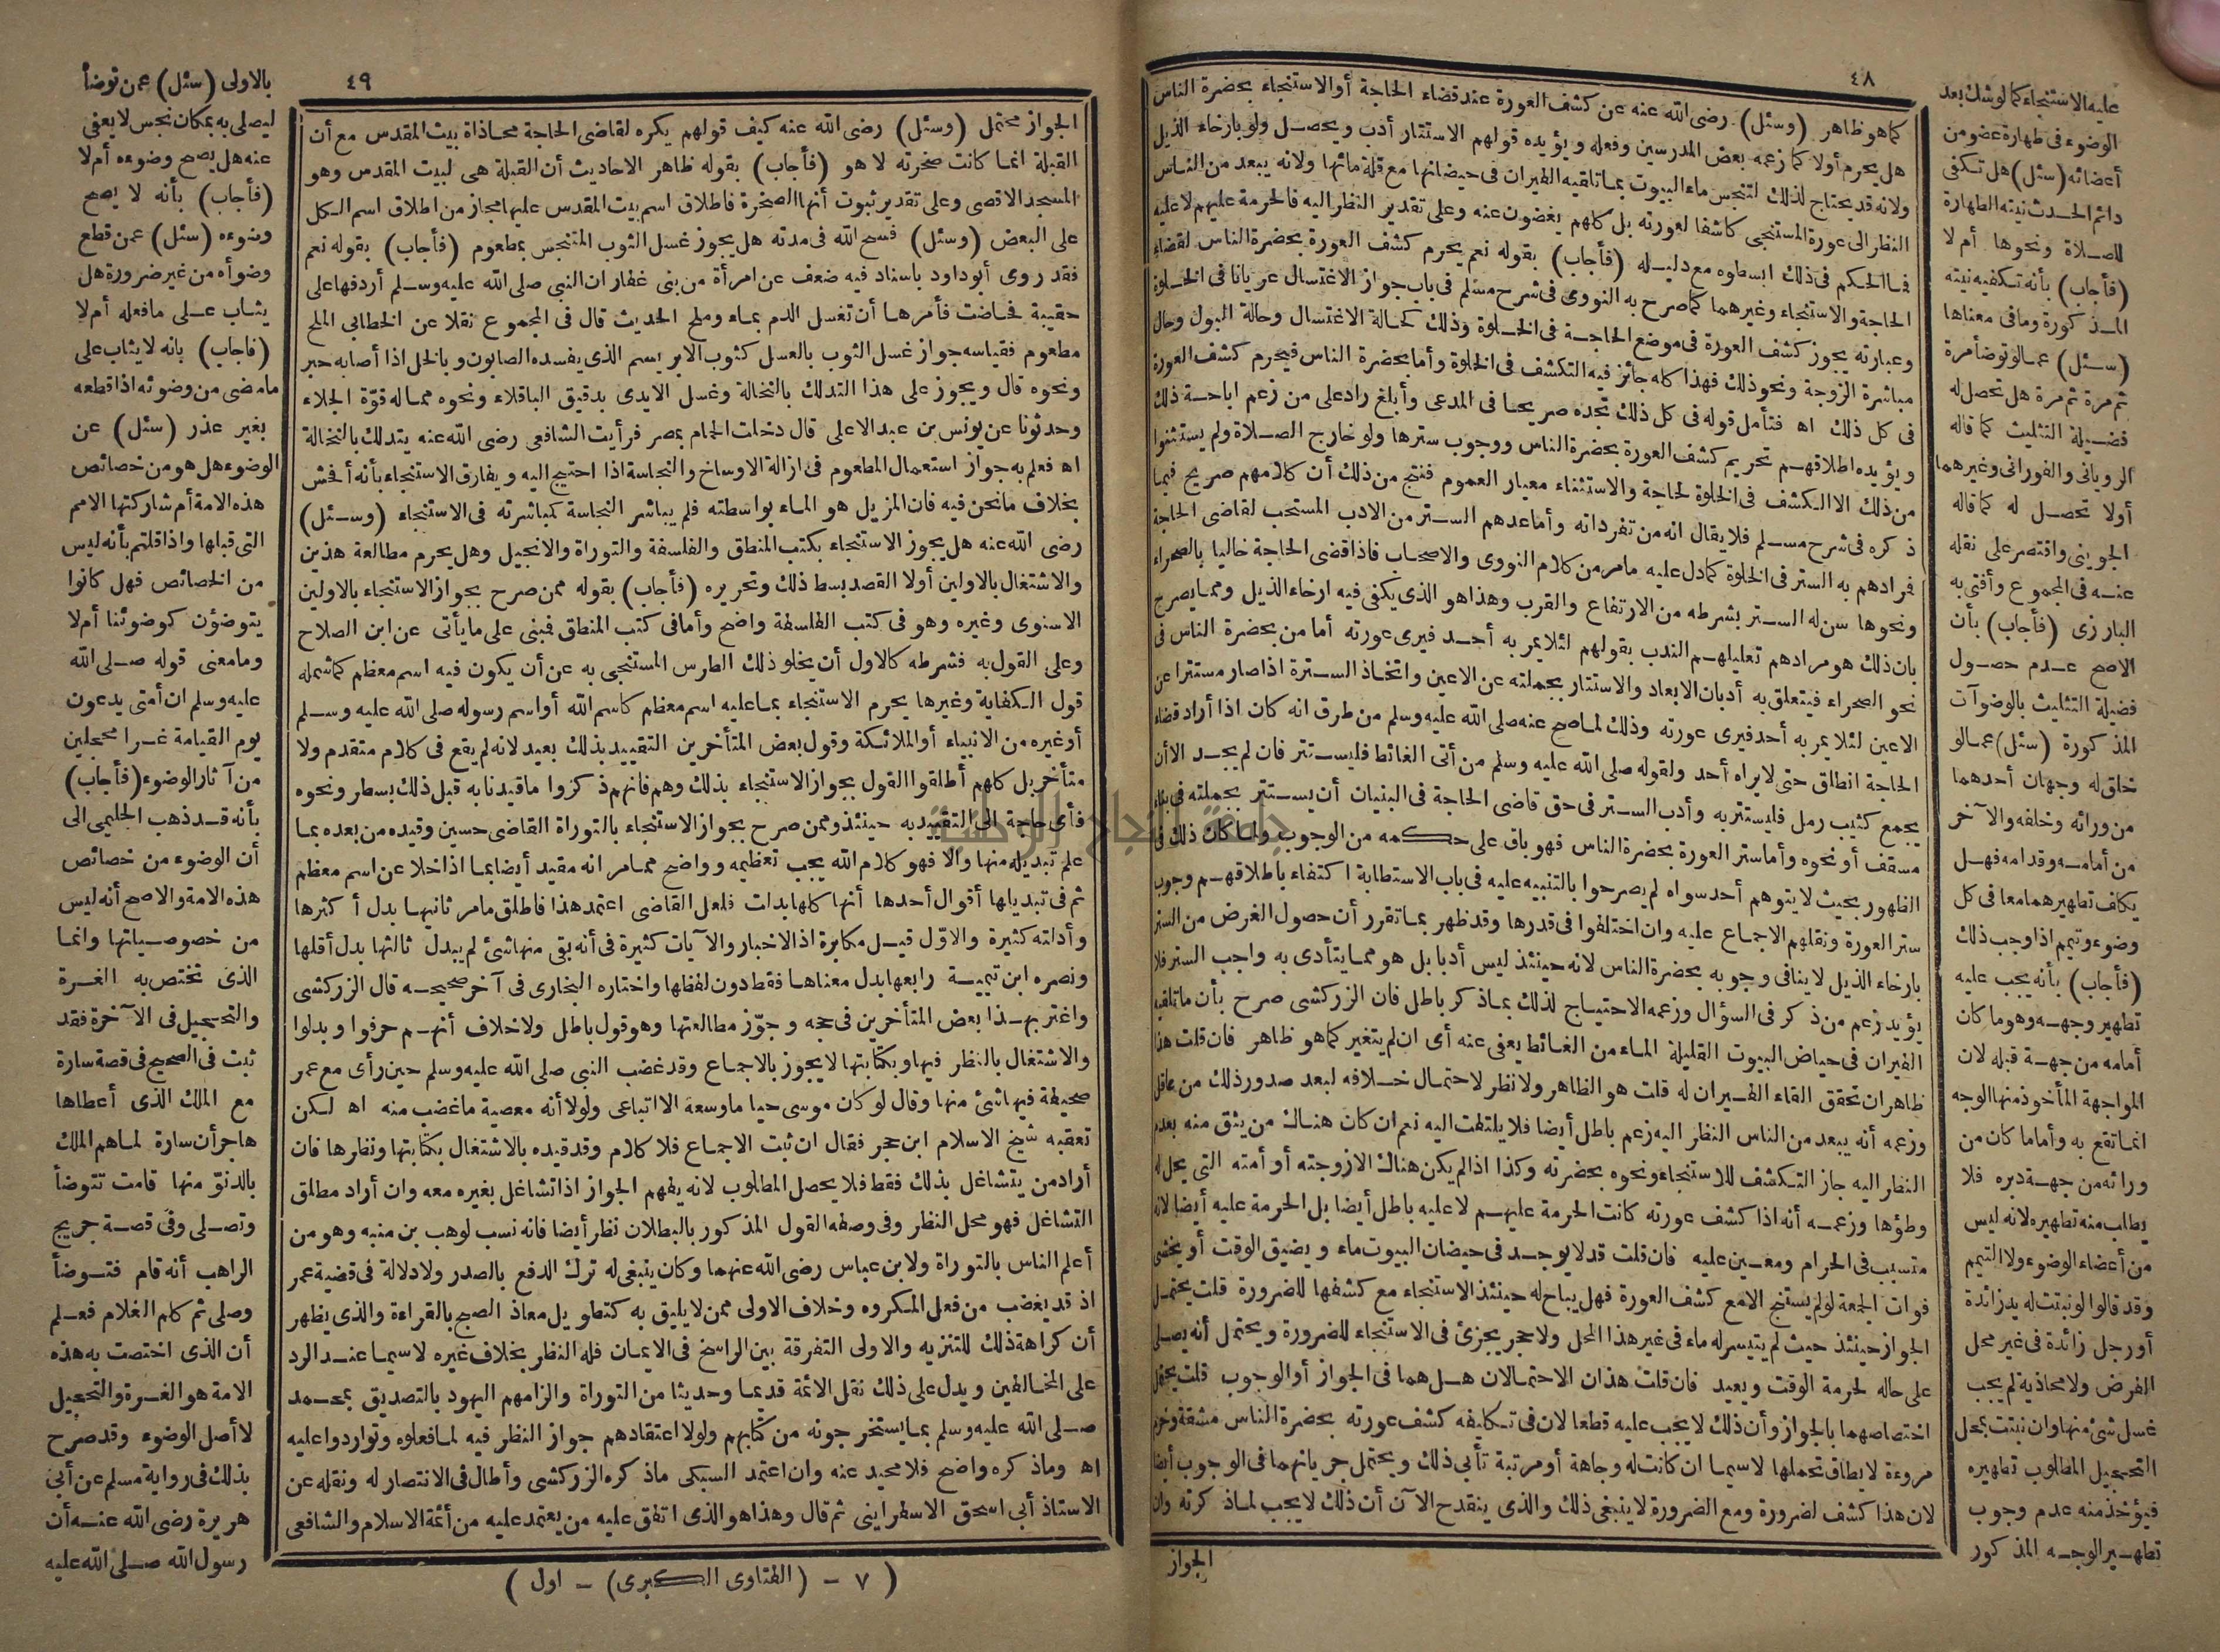 ٤٨
كما هو ظاهر (وسئل) رضى الله عنه عن كشف العورة عند قضاء الحاجة أو الاستنجاء بحضرة الناس
هل يحرم أولا كما زعمه بعض المدرسين وفعله ويؤيده قولهم الاستتار أدب ويحصل ولو بارخاء الذيل
ولانه قد يحتاج لذلك لتنجس ماء البيوت بما تلقيه الطيران فى حيضانها مع قلة مائها ولانه يبعد من الناس
النظر الى عورة المستنجى كاشفا لعورته بل كلهم يغضون عنه وعلى تقدير النظر اليه فالحرمة عليهم لا عليه
فما الحكم فى ذلك ابسطوه مع دليله (فأجاب) بقوله نعم يحرم كشف العورة بحضرة الناس لقضاء
الحاجة والاستنجاء وغيرهما كما صرح به النووى فى شرح مسلم فى باب جواز الاغتسال عريانا فى الخلوة
وعبارته يجوز كشف العورة فى موضع الحاجة فى الخلوة وذلك كحالة الاغتسال وحالة البول وحال
مباشرة الزوجة ونحو ذلك فهذا كله جائز فيه التكشف فى الخلوة وأما بحضرة الناس فيحرم كشف العورة
فى كل ذلك اه فتأمل قوله فى كل ذلك تجده صريحا فى المدعى وأبلغ راد على من زعم اباحة ذلك
ويؤيده اطلاقهم تحريم كشف العورة بحضرة الناس ووجوب سترها ولو خارج الصلاة ولم يستثنوا
من ذلك الا الكشف فى الخلوة لحاجة والاستثناء معيار العموم فنتج من ذلك أن كلامهم صريح فيما
ذكره فى شرح مسلم فلا يقال انه من تفرداته وأما عدهم الستر من الادب المستحب لقاضى الحاجة
فمرادهم به الستر فى الخلوة كما دل عليه ما مر من كلام النووى والاصحاب فاذا قضى الحاجة خاليا بالصحراء
ونحوها سن له الستر بشرطه من الارتفاع والقرب وهذا هو الذى يكفى فيه ارخاء الذيل ومما يصرح
بان ذلك هو مرادهم تعليلهم الندب بقولهم لئلا يمر به أحد فيرى عورته أما من بحضرة الناس فى
نحو الصحراء فيتعلق به أدبان الابعاد والاستتار بجملته عن الاعين واتخاذ السترة اذا صار مستترا عن
الاعين لئلا يمر به أحد فيرى عورته وذلك لما صح عنه صلى الله عليه وسلم من طرق انه كان اذا أراد قضاء
الحاجة انطلق حتى لا يراه أحد ولقوله صلى الله عليه وسلم من أتى الغائط فليستتر فان لم يجد الا أن
يجمع كثيب رمل فليستتر به وأدب الستر فى حق قاضى الحاجة فى البنيان أن يستتر بجملته فى بناء
مسقف أو نحوه وأما ستر العورة بحضرة الناس فهو باق على حكمه من الوجوب ولما كان ذلك فى
الظهور بحيث لا يتوهم أحد سواه لم يصرحوا بالتنبيه عليه فى باب الاستطابة اكتفاء باطلاقهم وجوب
ستر العورة ونقلهم الاجماع عليه وان اختلفوا فى قدرها وقد ظهر بما تقرر أن حصول الغرض من الستر
بارخاء الذيل لا ينافى وجوبه بحضرة الناس لانه حينئذ ليس أدبا بل هو مما يتأدى به واجب الستر فلا
يؤيد زعم من ذكر فى السؤال وزعمه الاحتياج لذلك بما ذكر باطل فان الزركشى صرح بأن ما تلقيه
الفيران فى حياض البيوت القليلة الماء من الغائط يعفى عنه أى ان لم يتغير كما هو ظاهر فان قلت هذا
ظاهر ان تحقق القاء الطيران له قلت هو الظاهر ولا نظر لاحتمال خلافه لبعد صدور ذلك من عاقل
وزعمه أنه يبعد من الناس النظر اليه زعم باطل أيضا فلا يلتفت اليه نعم ان كان هناك من يثق منه بعدم
النظر اليه جاز التكشف للاستنجاء ونحوه بحضرته وكذا اذا لم يكن هناك الا زوجته أو أمته التى يحل له
وطؤها وزعمه أنه اذا كشف عورته كانت الحرمة عليهم لا عليه باطل أيضا بل الحرمة عليه أيضا لانه
متسبب فى الحرام ومعين عليه فان قلت قد لا يوجد فى حيضان البيوت ماء ويضيق الوقت أو يخشى
فوات الجمعة لو لم يستنج الا مع كشف العورة فهل يباح له حينئذ الاستنجاء مع كشفها للضرورة قلت يحتمل
الجواز حينئذ حيث لم يتيسر له ماء فى غير هذا المحل ولا حجر يجزئ فى الاستنجاء للضرورة ويحتمل أنه يصلى
على حاله لحرمة الوقت ويعيد فان قلت هذان الاحتمالان هل هما فى الجواز أو الوجوب قلت يحتمل
اختصاصهما بالجواز وأن ذلك لا يجب عليه قطعا لان فى تكليفه كشف عورته بحضرة الناس مشقة وخرم
مروءة لا يطاق تحملها لا سيما ان كانت له وجاهة أو مرتبة تأبى ذلك ويحتمل جريانهما فى الوجوب أيضا
لان هذا كشف لضرورة ومع الضرورة لا ينبغى ذلك والذى ينقدح الآن أن ذلك لا يجب لما ذكرته وان
الجواز
عليه الاستنجاء كما لو شك بعد
الوضوء فى طهارة عضو من
أعضائه (سئل) هل تكفى
دائم الحدث نيته الطهارة
للصلاة ونحوها أم لا
(فأجاب) بأنه تكفيه نيته
المذكورة وما فى معناها
(سئل) عما لو توضأ مرة
ثم مرة ثم مرة هل تحصل له
فضيلة التثليث كما قاله
الرويانى والفورانى وغيرهما
أولا تحصل له كما قاله
الجوينى واقتصر على نقله
عنه فى المجموع وأفتى به
البارزى (فأجاب) بأن
الاصح عدم حصول
فضيلة التثليث بالوضوآت
المذكورة (سئل) عما لو
خلق له وجهان أحدهما
من ورائه وخلفه والآخر
من أمامه وقدامه فهل
يكلف تطهيرهما معا فى كل
وضوء وتيمم اذا وجب ذلك
(فأجاب) بأنه يجب عليه
تطهير وجهه وهو ما كان
أمامه من جهة قبله لان
المواجهة المأخوذ منها الوجه
انما تقع به وأما ما كان من
ورائه من جهة دبره فلا
يطلب منه تطهيره لانه ليس
من أعضاء الوضوء ولا التيمم
وقد قالوا لو نبتت له يد زائدة
أو رجل زائدة فى غير محل
الفرض ولا محاذية لم يجب
غسل شئ منها وان نبتت بمحل
التحجيل المطلوب تطهيره
فيؤخذ منه عدم وجوب
تطهير الوجه المذكور
٤٩
الجواز محتمل (وسئل) رضى الله عنه كيف قولهم يكره لقاضى الحاجة محاذاة بيت المقدس مع أن
القبلة انما كانت صخرته لا هو (فأجاب) بقوله ظاهر الاحاديث أن القبلة هى لبيت المقدس وهو
المسجد الاقصى وعلى تقدير ثبوت أنها الصخرة فاطلاق اسم بيت المقدس عليها مجاز من اطلاق اسم الكل
على البعض (وسئل) فسح الله فى مدته هل يجوز غسل الثوب المتنجس بمطعوم (فأجاب) بقوله نعم
فقد روى أبو داود باسناد فيه ضعف عن امرأة من بنى غفار ان النبى صلى الله عليه وسلم أردفها على
حقيبة فحاضت فأمرها أن تغسل الدم بماء وملح الحديث قال فى المجموع نقلا عن الخطابى الملح
مطعوم فقياسه جواز غسل الثوب بالعسل كثوب الابريسم الذى يفسده الصابون وبالخل اذا أصابه حبر
ونحوه قال ويجوز على هذا التدلك بالنخالة وغسل الايدى بدقيق الباقلاء ونحوه مما له قوّة الجلاء
وحدثونا عن يونس بن عبد الاعلى قال دخلت الحمام بمصر فرأيت الشافعى رضى الله عنه يتدلك بالنخالة
اه فعلم به جواز استعمال المطعوم فى ازالة الاوساخ والنجاسة اذا احتيج اليه ويفارق الاستنجاء بأنه أفحش
بخلاف ما نحن فيه فان المزيل هو الماء بواسطته فلم يباشر النجاسة كمباشرته فى الاستنجاء (وسئل)
رضى الله عنه هل يجوز الاستنجاء بكتب المنطق والفلسفة والتوراة والانجيل وهل يحرم مطالعة هذين
والاشتغال بالاولين أولا القصد بسط ذلك وتحريره (فأجاب) بقوله ممن صرح بجواز الاستنجاء بالاولين
الاسنوى وغيره وهو فى كتب الفلسفة واضح وأما فى كتب المنطق فمبنى على ما يأتى عن ابن الصلاح
وعلى القول به فشرطه كالاول أن يخلو ذلك الطرس المستنجى به عن أن يكون فيه اسم معظم كما شمله
قول الكفاية وغيرها يحرم الاستنجاء بما عليه اسم معظم كاسم الله أو اسم رسوله صلى الله عليه وسلم
أو غيره من الانبياء أو الملائكة وقول بعض المتأخرين التقييد بذلك بعيد لانه لم يقع فى كلام متقدم ولا
متأخر بل كلهم أطلقوا القول بجواز الاستنجاء بذلك وهم فانهم ذكروا ما قيدنا به قبل ذلك بسطر ونحوه
فأى حاجة الى التقييد به حينئذ وممن صرح بجواز الاستنجاء بالتوراة القاضى حسين وقيده من بعده بما
علم تبديله منها والا فهو كلام الله يجب تعظيمه وواضح مما مر انه مقيد أيضا بما اذا خلا عن اسم معظم
ثم فى تبديلها أقوال أحدها أنها كلها بدلت فلعل القاضى اعتمد هذا فاطلق ما مر ثانيها بدل أكثرها
وأدلته كثيرة والاوّل قيل مكابرة اذ الاخبار والآيات كثيرة فى أنه بقى منها شئ لم يبدل ثالثها بدل أقلها
ونصره ابن تيمية رابعها بدل معناها فقط دون لفظها واختاره البخارى فى آخر صحيحه قال الزركشى
واغتر بهذا بعض المتأخرين فى حجه وجوّز مطالعتها وهو قول باطل ولا خلاف أنهم حرفوا وبدلوا
والاشتغال بالنظر فيها وبكتابتها لا يجوز بالاجماع وقد غضب النبى صلى الله عليه وسلم حين رأى مع عمر
صحيفة فيها شئ منها وقال لو كان موسى حيا ما وسعه الا اتباعى ولولا أنه معصية ما غضب منه اه لكن
تعقبه شيخ الاسلام ابن حجر فقال ان ثبت الاجماع فلا كلام وقد قيده بالاشتغال بكتابتها ونظرها فان
أراد من يتشاغل بذلك فقط فلا يحصل المطلوب لانه يفهم الجواز اذا تشاغل بغيره معه وان أراد مطلق
التشاغل فهو محل النظر وفى وصفه القول المذكور بالبطلان نظر أيضا فانه نسب لوهب بن منبه وهو من
أعلم الناس بالتوراة ولابن عباس رضى الله عنهما وكان ينبغى له ترك الدفع بالصدر ولا دلالة فى قضية عمر
اذ قد يغضب من فعل المكروه وخلاف الاولى ممن لا يليق به كتطويل معاذ الصبح بالقراءة والذى يظهر
أن كراهة ذلك للتنزيه والاولى التفرقة بين الراسخ فى الايمان فله النظر بخلاف غيره لا سيما عند الرد
على المخالفين ويدل على ذلك نقل الائمة قديما وحديثا من التوراة والزامهم اليهود بالتصديق بمحمد
صلى الله عليه وسلم بما يستخرجونه من كتابهم ولولا اعتقادهم جواز النظر فيه لما فعلوه وتواردوا عليه
اه وما ذكره واضح فلا محيد عنه وان اعتمد السبكى ما ذكره الزركشى وأطال فى الانتصار له ونقله عن
الاستاذ أبى اسحق الاسفراينى ثم قال وهذا هو الذى اتفق عليه من يعتمد عليه من أئمة الاسلام والشافعى
( ٧ - (الفتاوى الكبرى) - اول )
بالاولى (سئل) عمن توضأ
ليصلى به بمكان نجس لا يعفى
عنه هل يصح وضوءه أم لا
(فأجاب) بأنه لا يصح
وضوءه (سئل) عمن قطع
وضوأه من غير ضرورة هل
يثاب على ما فعله أم لا
(فاجاب) بانه لا يثاب على
ما مضى من وضوئه اذا قطعه
بغير عذر (سئل) عن
الوضوء هل هو من خصائص
هذه الامة أم شاركتها الامم
التى قبلها واذا قلتم بأنه ليس
من الخصائص فهل كانوا
يتوضؤن كوضوئنا أم لا
وما معنى قوله صلى الله
عليه وسلم ان أمتى يدعون
يوم القيامة غرا محجلين
من آثار الوضوء (فأجاب)
بأنه قد ذهب الحليمى الى
أن الوضوء من خصائص
هذه الامة والاصح أنه ليس
من خصوصياتها وانما
الذى تختص به الغرة
والتحجيل فى الآخرة فقد
ثبت فى الصحيح فى قصة سارة
مع الملك الذى أعطاها
هاجر أن سارة لما هم الملك
بالدنوّ منها قامت تتوضأ
وتصلى وفى قصة جريج
الراهب أنه قام فتوضأ
وصلى ثم كلم الغلام فعلم
أن الذى اختصت به هذه
الامة هو الغرة والتحجيل
لا أصل الوضوء وقد صرح
بذلك فى رواية مسلم عن أبى
هريرة رضى الله عنه أن
رسول الله صلى الله عليه